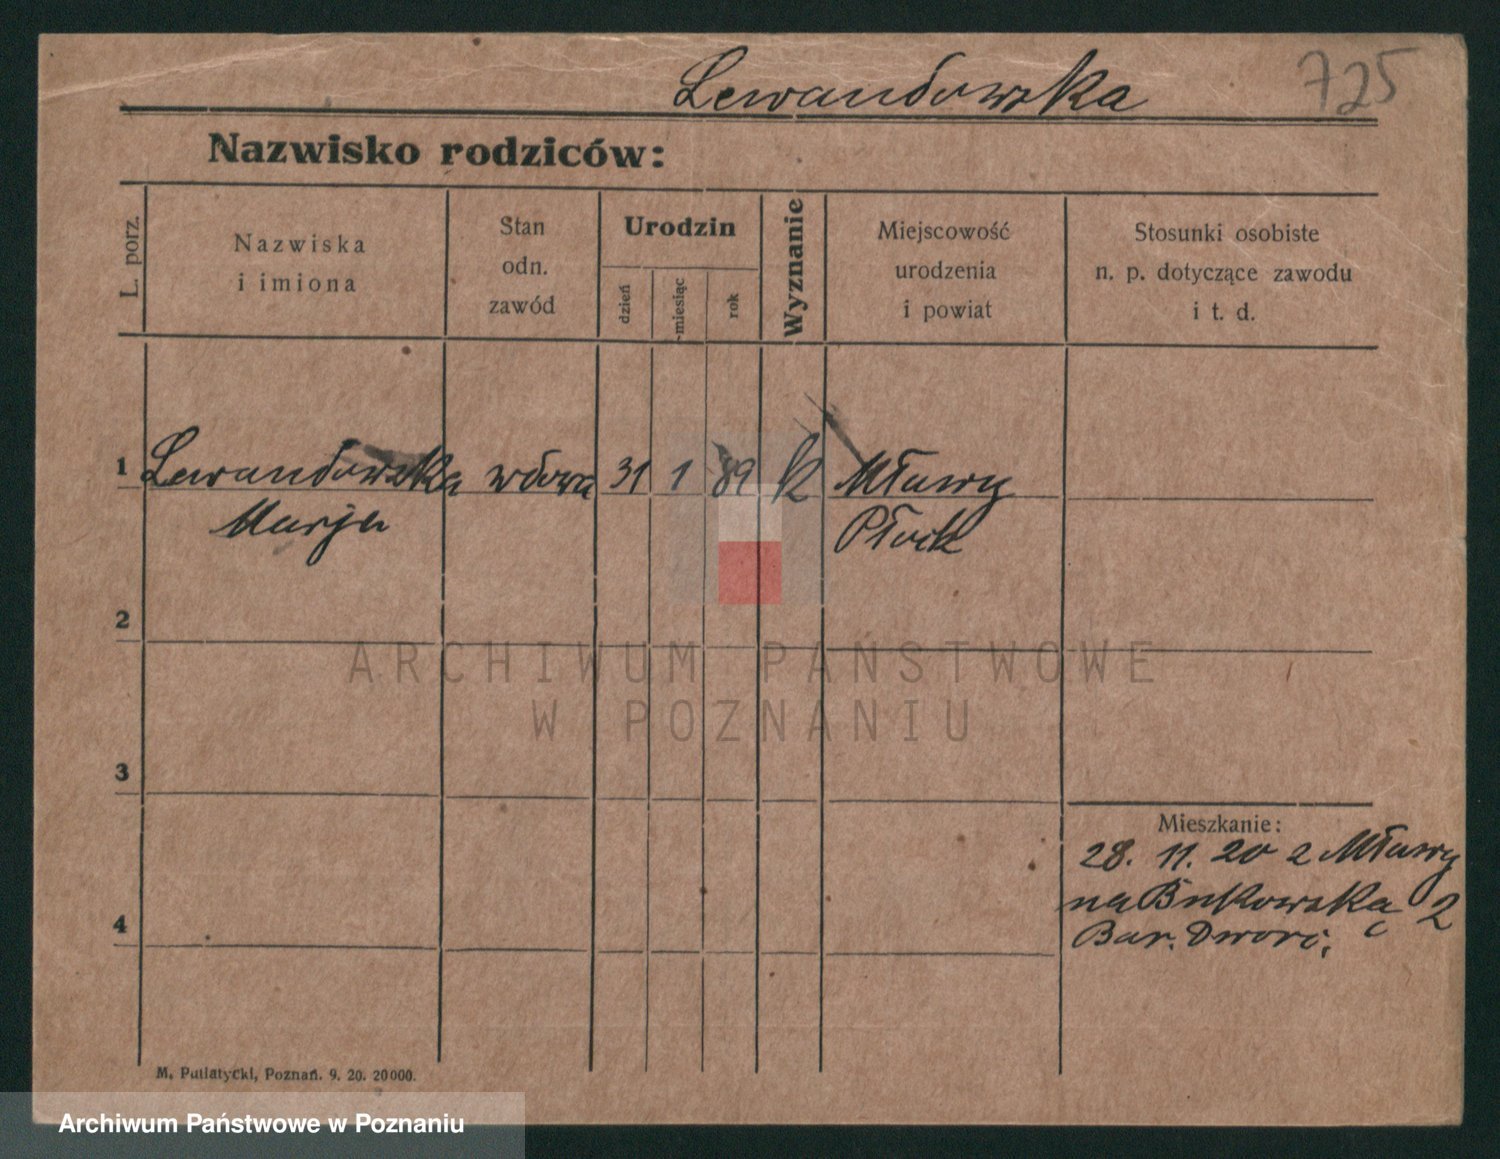 Lewandowska 725
Nazwisko rodziców:
L. porz.
Nazwiska
i imiona
Stan
odn.
zawód
Urodzin
dzień
miesiąc
rok
Wyznanie
Miejscowość
urodzenia
i powiat
Stosunki osobiste
n. p. dotyczące zawodu
i t. d.
1 Lewandowska wdowa 31 1 89 k Mławy
Marja Płock
2
ARCHIWUM PAŃSTWOWE
W POZNANIU
3
Mieszkanie:
28. 11. 20 z Mławy
na Bukowską 2
4
Bar. Dworc.
M. Putiatycki, Poznań. 9. 20. 20000.
Archiwum Państwowe w Poznaniu